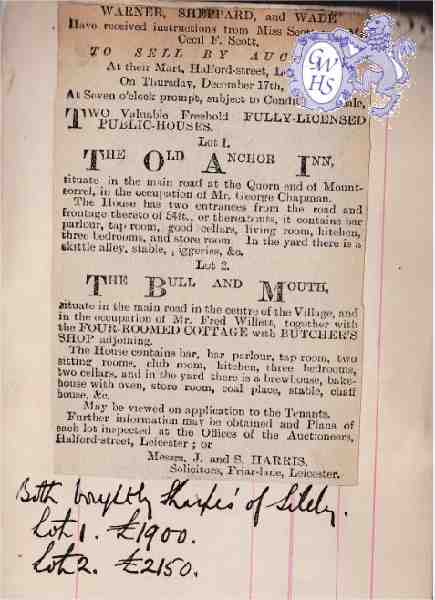 WARNER, SHEPPARD, and WADE
Have received instructions from Miss Scott
Cecil F. Scott,
TO SELL BY AUC
At their Mart, Halford-street, Le
On Thursday, December 17th,
At Seven o'clock prompt, subject to Condi ale,
TWO Valuable Freehold FULLY-LICENSED
PUBLIC-HOUSES.
Lot 1.
THE OLD ANCHOR INN,
situate in the main road at the Quorn end of Mount-
sorrel, in the occupation of Mr. George Chapman.
The House has two entrances from the road and
frontage thereto of 54ft., or thereabouts, it contains bar
parlour, tap room, good cellars, living room, kitchen,
three bedrooms, and store room. In the yard there is a
skittle alley, stable, iggeries, &c.
Lot 2.
THE BULL AND MOUTH,
situate in the main road in the centre of the Village, and
in the occupation of Mr. Fred Willett, together with
the FOUR-ROOMED COTTAGE with BUTCHER'S
SHOP adjoining.
The House contains bar, bar parlour, tap room, two
sitting rooms, club room, kitchen, three bedrooms,
two cellars, and in the yard there is a brewhouse, bake-
house with oven, store room, coal place, stable, chaff
house, &c.
May be viewed on application to the Tenants.
Further information may be obtained and Plans of
each lot inspected at the Offices of the Auctioneers,
Halford-street, Leicester; or
Messrs. J. and S. HARRIS,
Solicitors, Friar-lane, Leicester.
Both bought by Sharpes' of Sileby.
Lot 1. £1900.
Lot 2. £2150.
GWHS